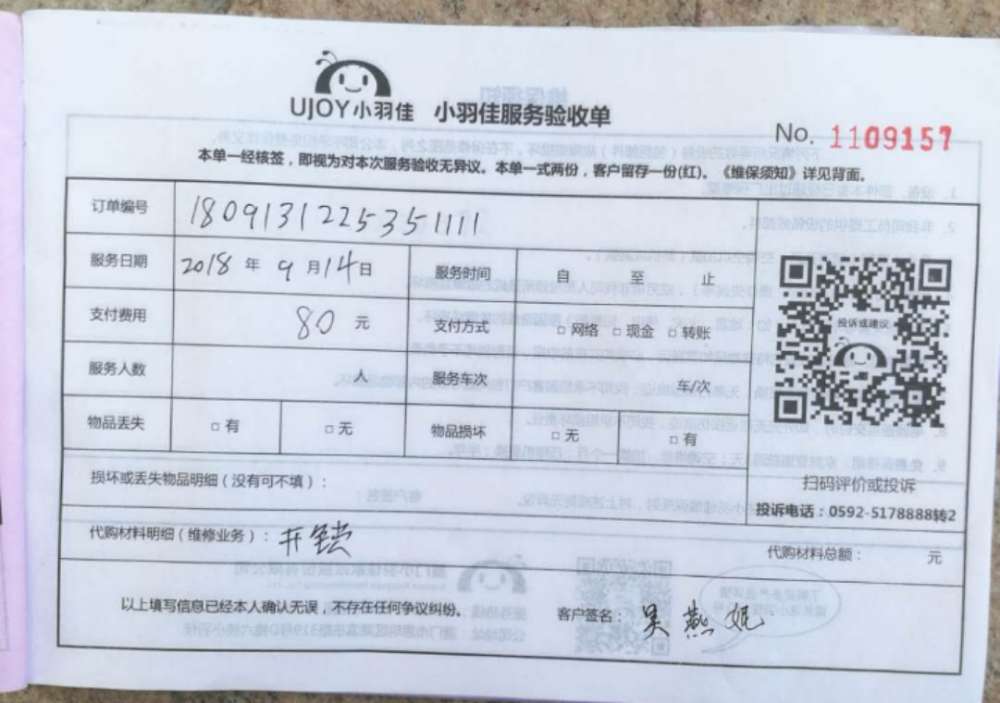 UJOY小羽佳 小羽佳服务验收单
No. 1109157
本单一经核签，即视为对本次服务验收无异议。本单一式两份，客户留存一份(红)。《维保须知》详见背面。
订单编号 1809131225351111
服务日期 2018 年 9 月 14 日 服务时间 自 至 止
投诉或建议
支付费用 80 元 支付方式 □ 网络 □ 现金 □ 转账
服务人数 人 服务车次 车/次
物品丢失 □ 有 □ 无 物品损坏 □ 无 □ 有
损坏或丢失物品明细（没有可不填）：
扫码评价或投诉
投诉电话：0592-5178888转2
代购材料明细（维修业务）：开锁 代购材料总额： 元
以上填写信息已经本人确认无误，不存在任何争议纠纷。 客户签名：吴燕妮